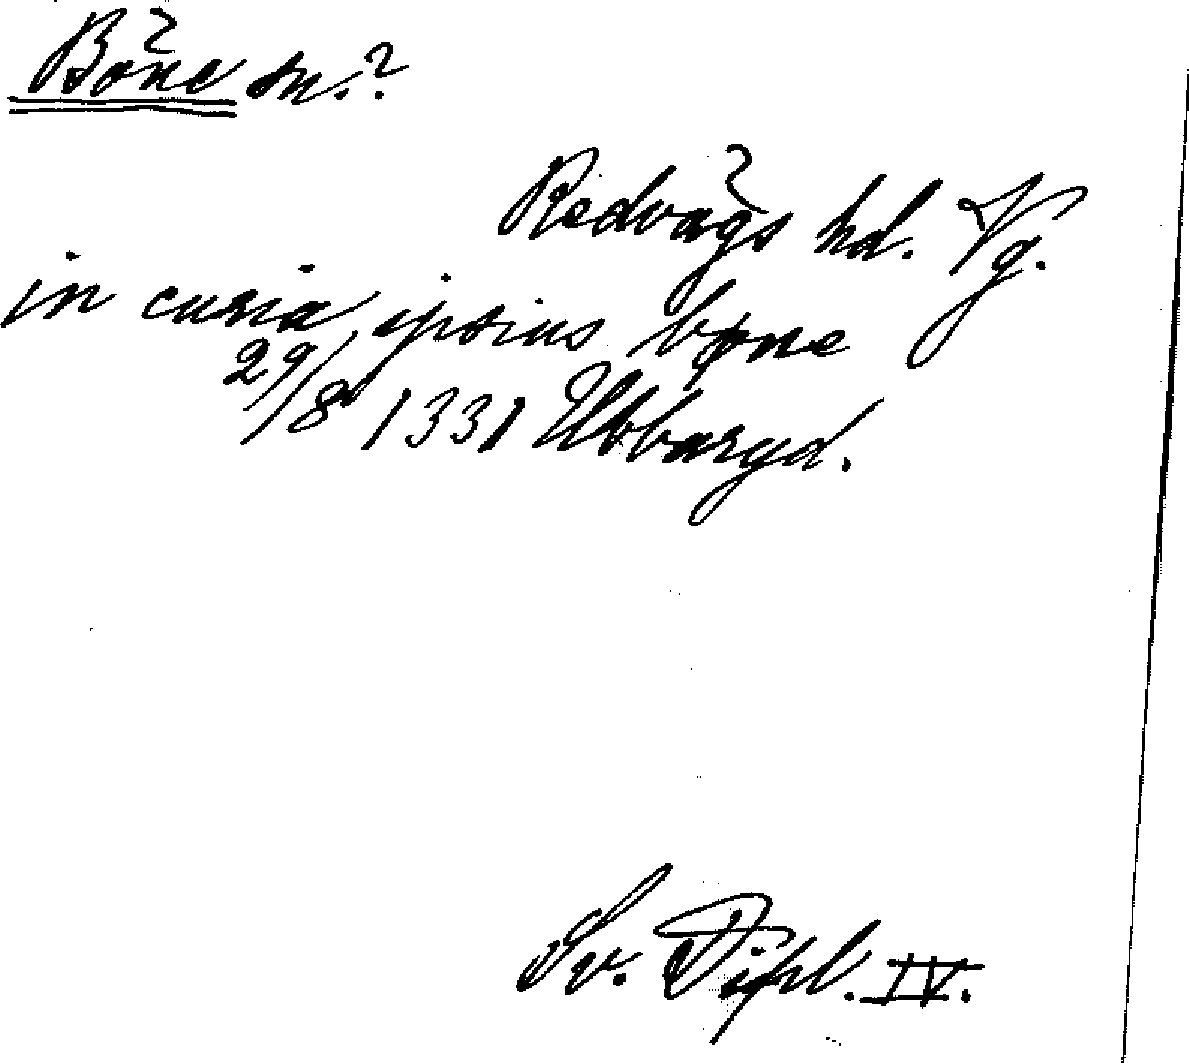 Böne sn.?
Redvägs hd. Vg.
in curia ipsius bøne
29/8 1331 Ubbaryd.
Sv. Dipl. IV.